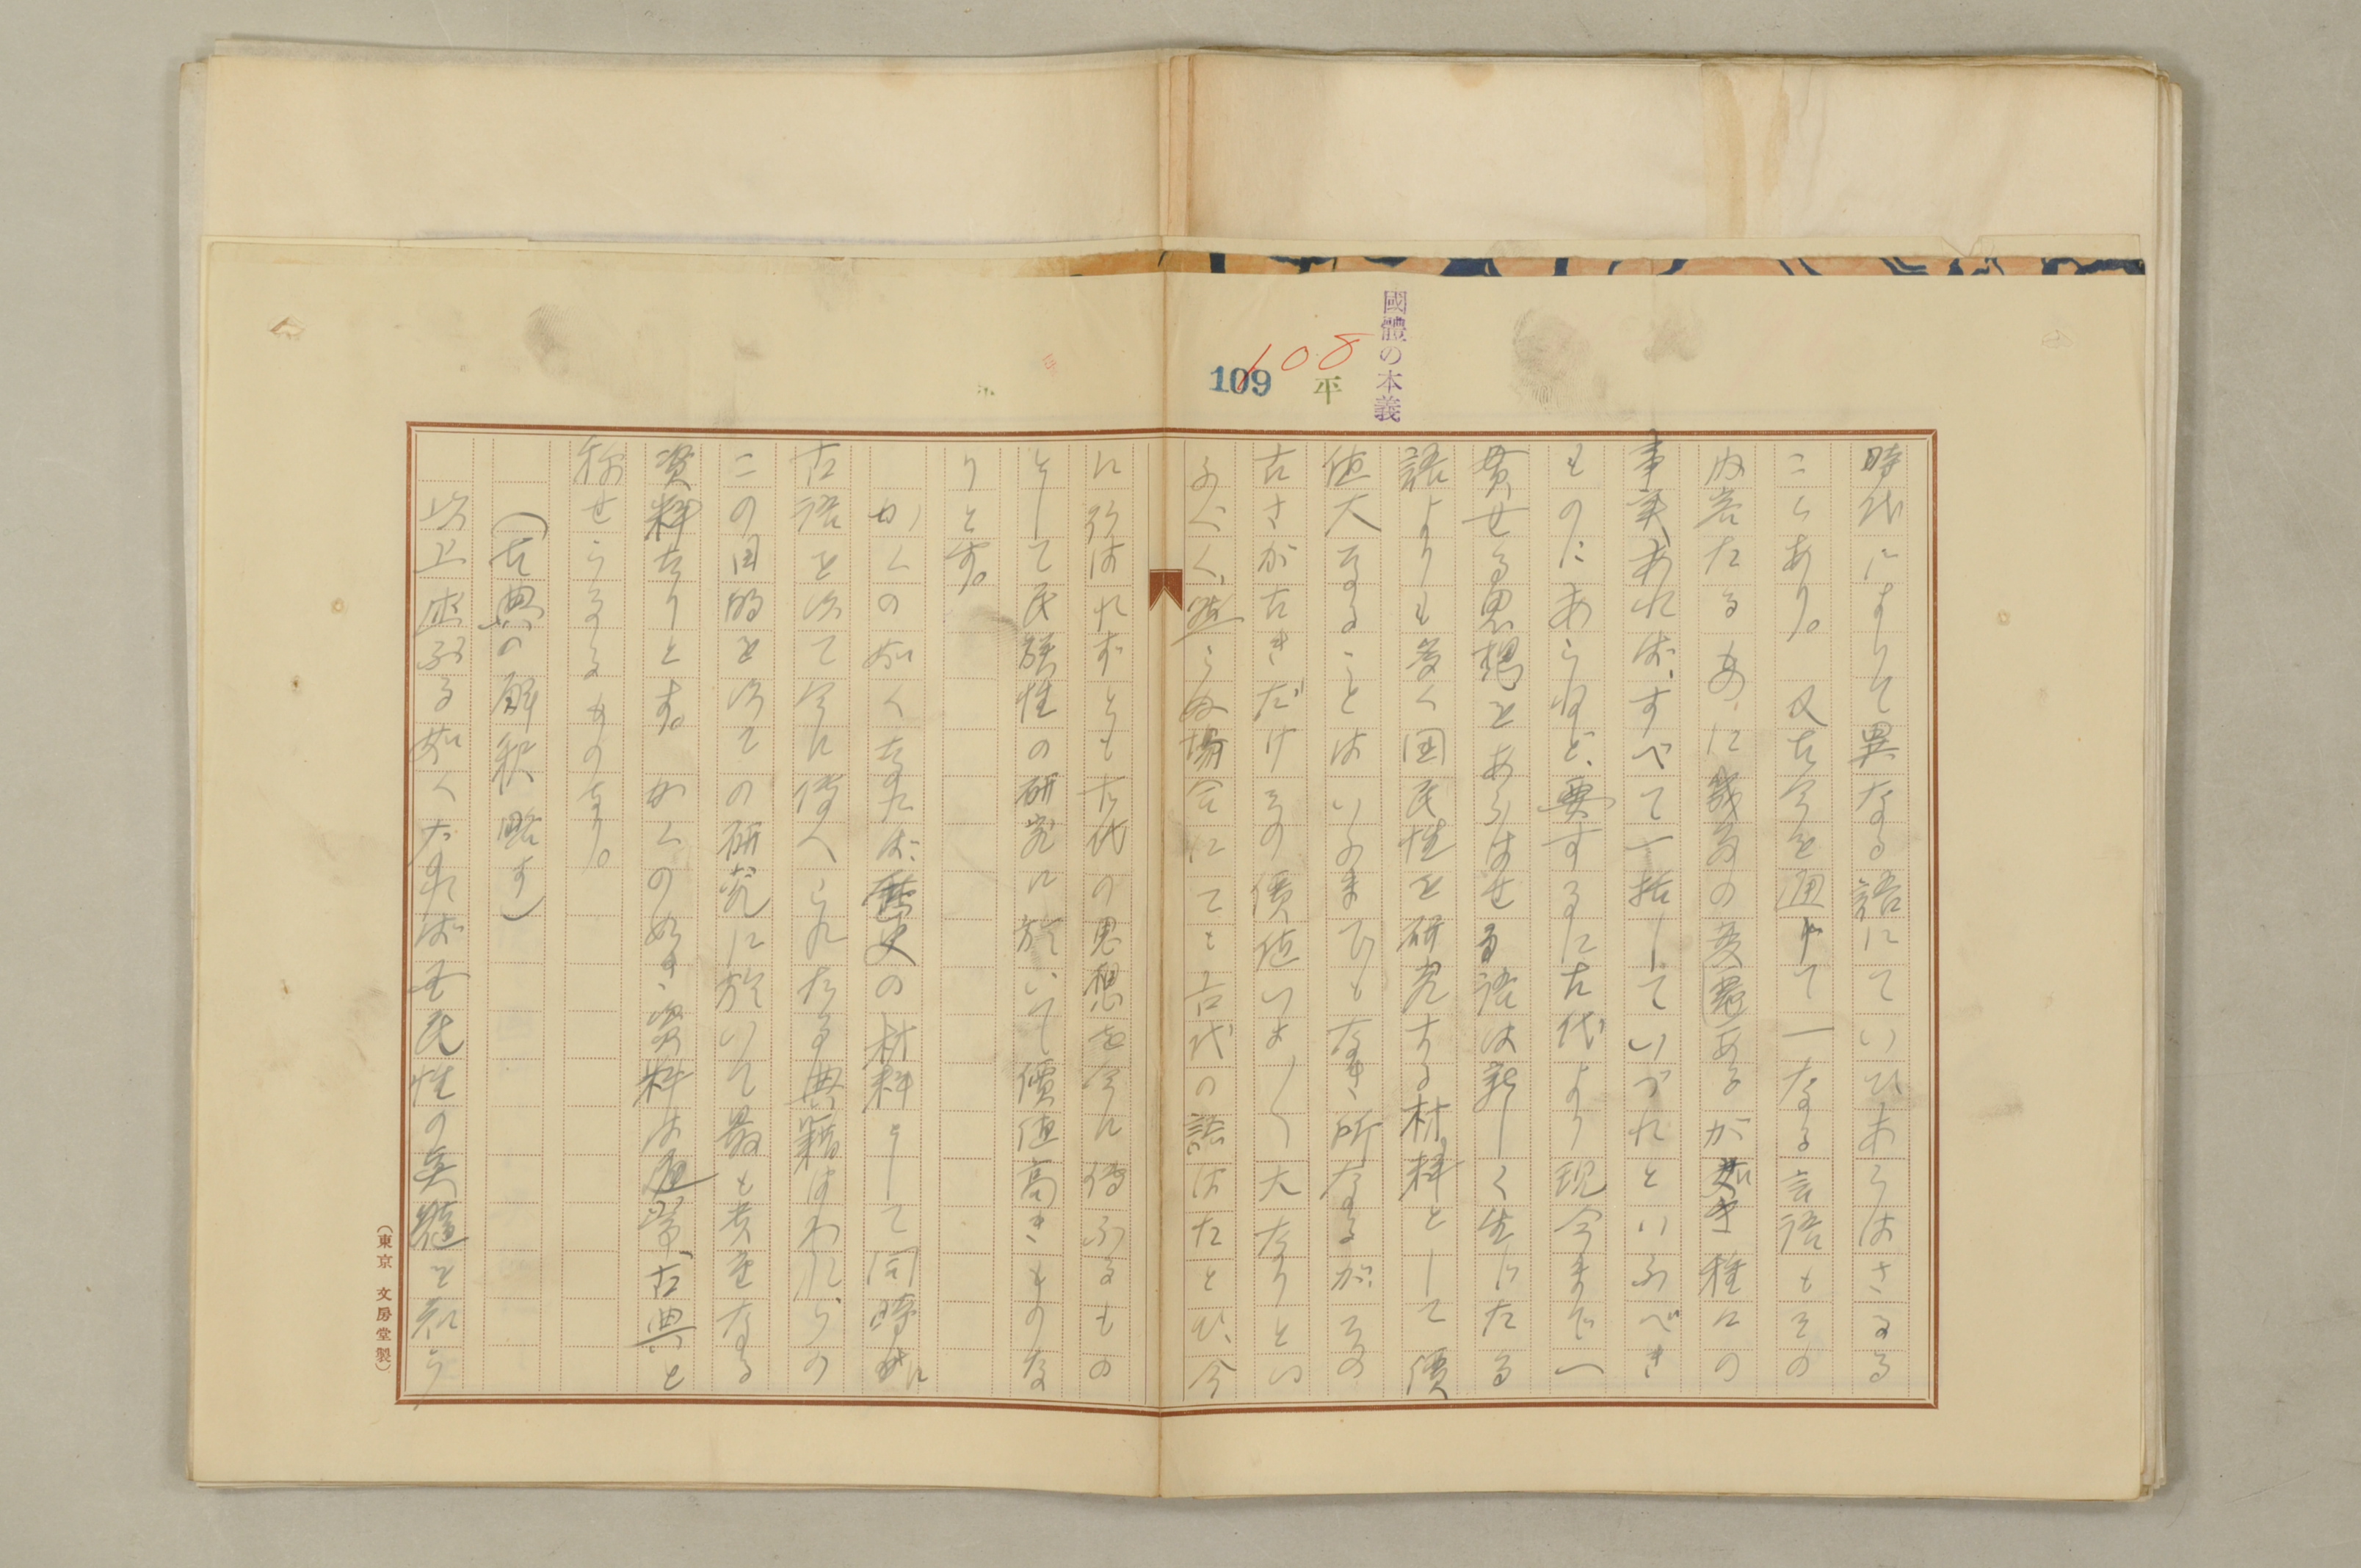 國體の本義
108
109
平
時代によりて異なる語にていひあらはさるる
ことあり。又古今を通じて一なる言語もその
内容たるあに幾多の変遷あるが如き種々の
事実あれば、すべて一括していづれといふべき
ものにあらねど、要するに古代より現今まで一
貫せる思想をあらはせる語は新しく生じたる
語よりも多く国民性を研究する材料として價
値大なることはいふまでもなき所なるがその
古さが古きだけその價値いよ〱大なりとい
ふべく、然らぬ場合にても古代の語はたとひ、今
に行はれずとも古代の思想を今に傳ふるもの
として民族性の研究に於いて價値高きものな
りとす。
かくの如くなれば、歴史の材料として同時に
古語を以て今に傳へられたる典籍はわれらの
この目的を以ての研究に於いて最も貴重なる
資料なりとす。かくの如き資料は通常、古典と
称せらるるものなり。
（古典の解釈略す）
以上述ぶる如くなれば国民性の真髄を知ら
（東京 文房堂製）